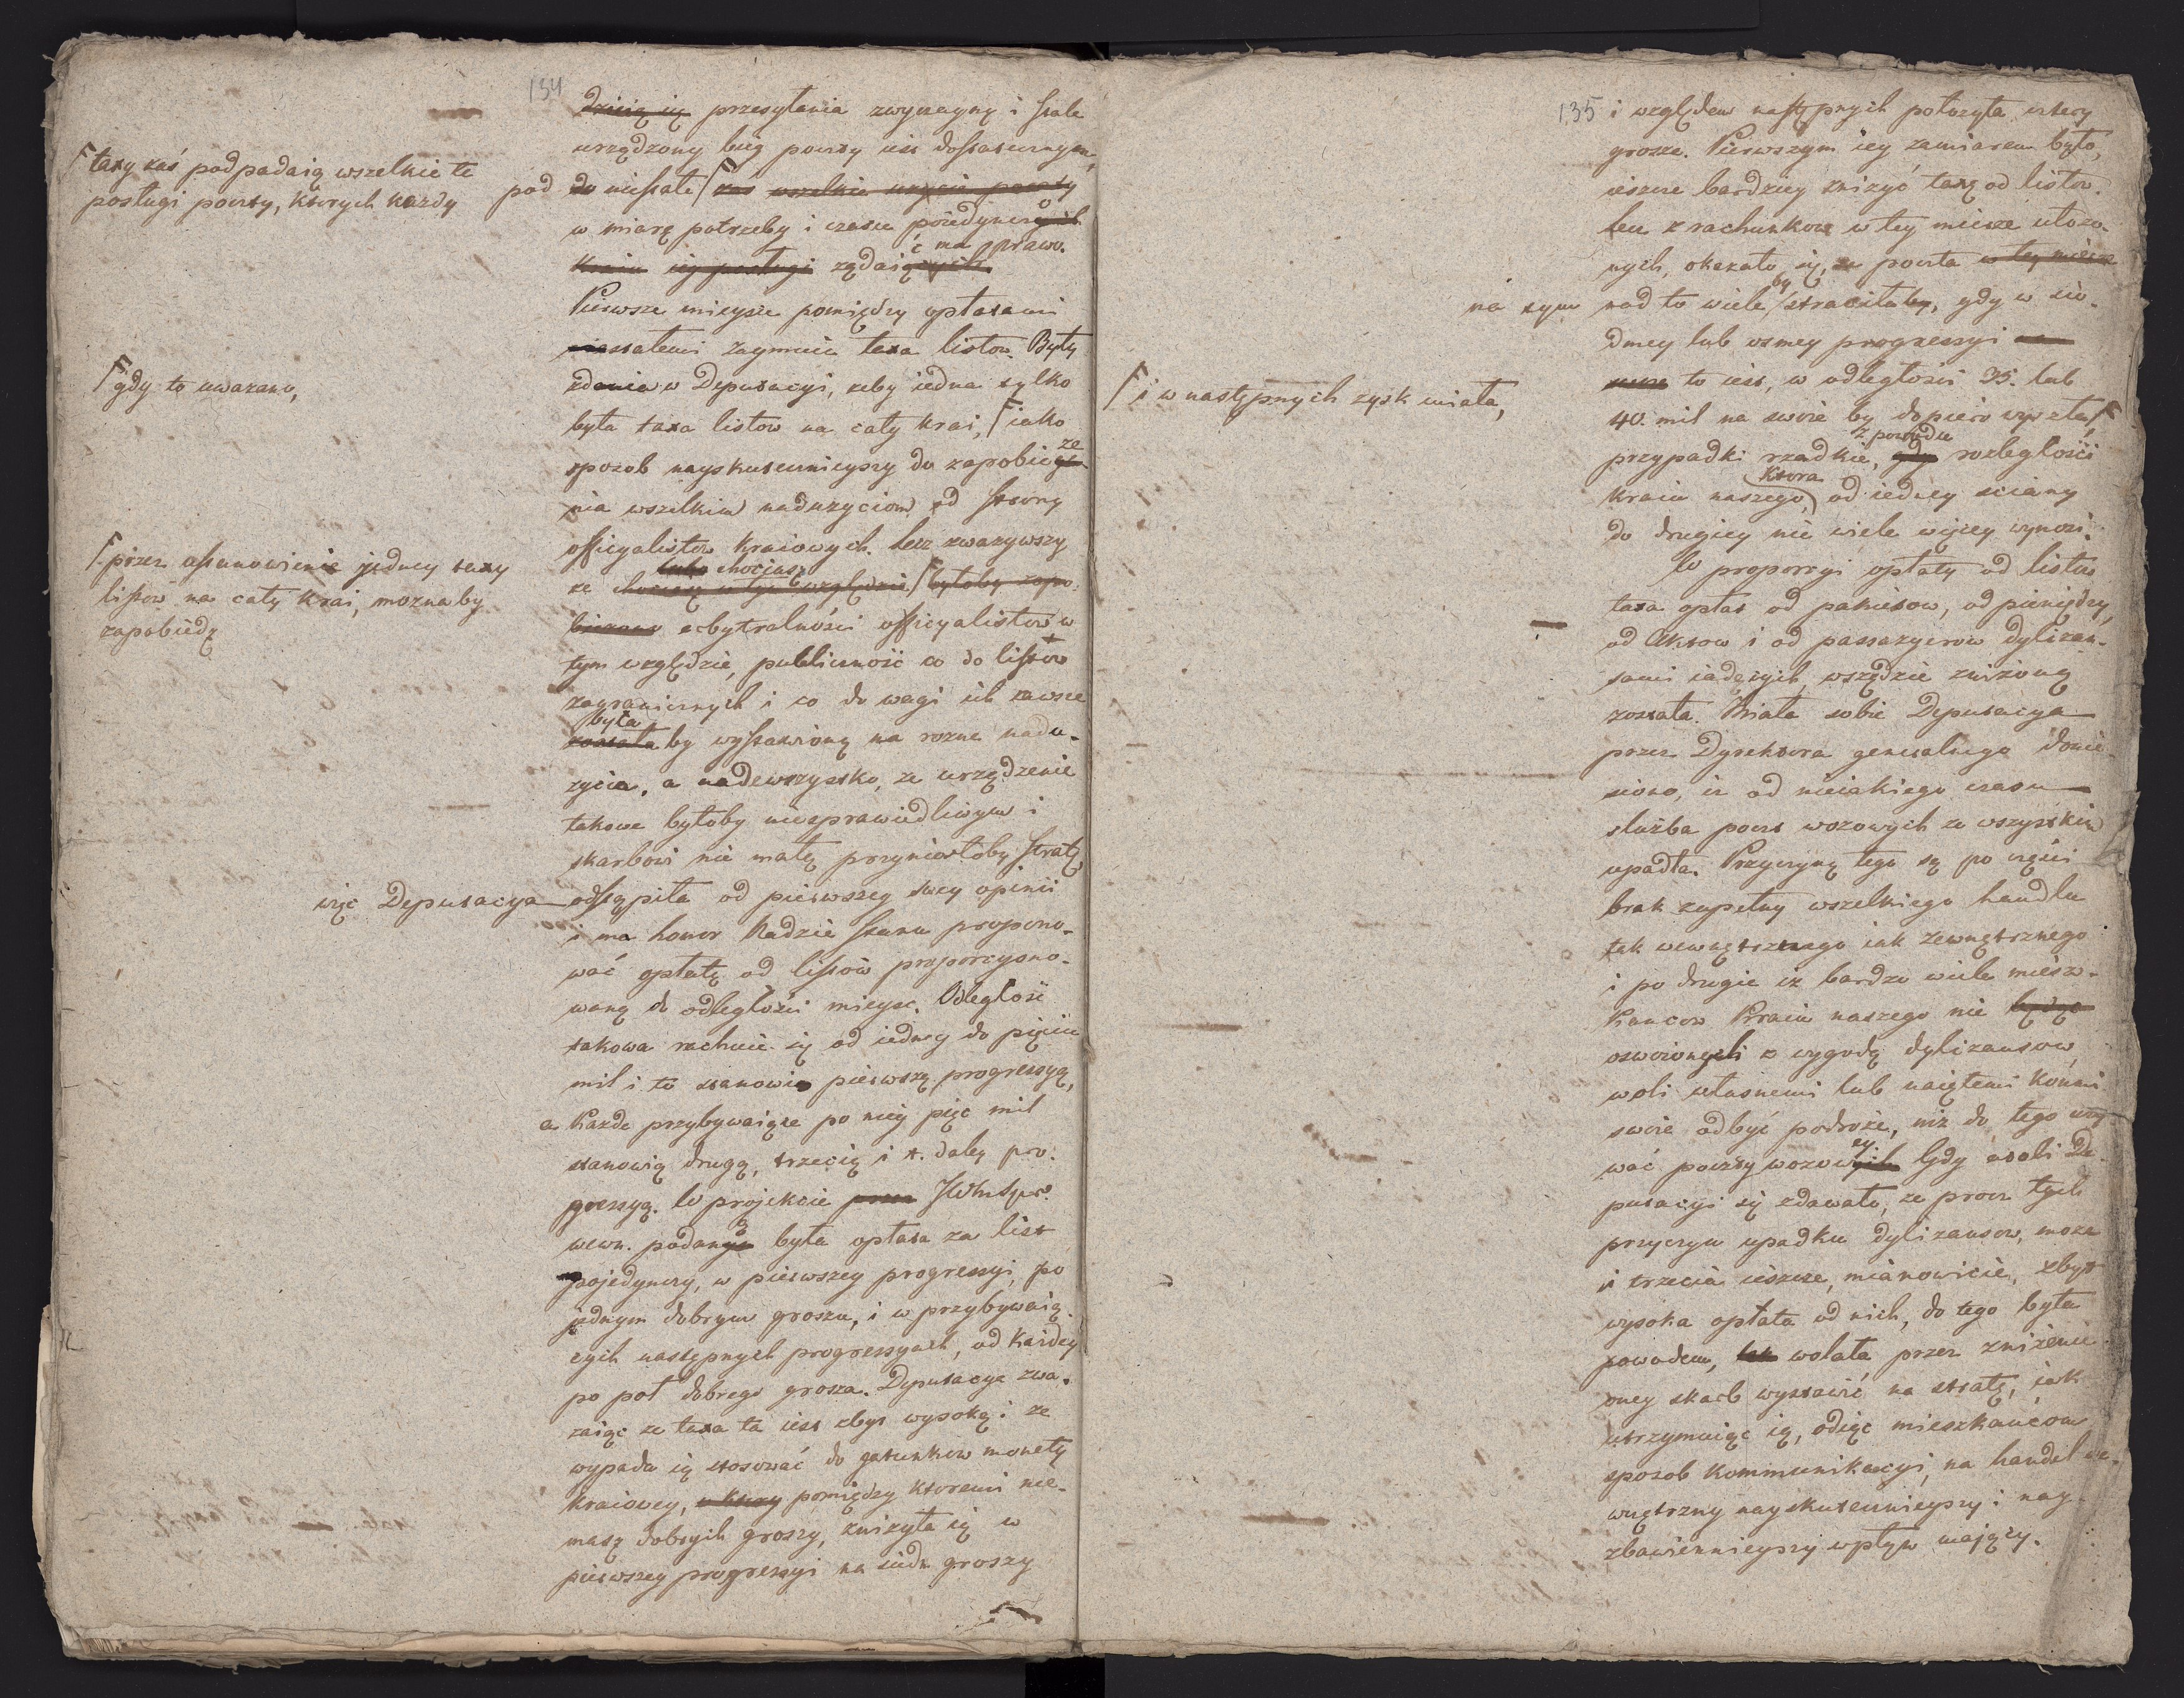 134
dzisią ię przesyłania zwyczayny i stale
urządzony bieg poczty iest dostatecznym,
pod do niestałe / zaś wszelkie użycie poczty
w miarę potrzeby i czasu poiedynczych
kraiu iey posługi żądaiących ć ma prawo.
taxy zaś podpadaią wszelkie te
posługi poczty, ktorych kazdy
Pierwsze mieysce pomiędzy opłatami
niestałemi zaymuie taxa listow. Były
zdania w Deputacyi, zeby iedna tylko
była taxa listow na cały kray, / iako
gdy to uwazano,
sposob nayskutecznieyszy do zapobieże
nia wszelkim naduzyciom od strony
officyalistow kraiowych. lecz zwazywszy
ze chociaz w tym względzie / byłoby zapo
lubo chociasz
bieżono arbytralności officyalistow w
przez ustanowienie jedney taxy
listow na cały kraj, moznaby
zapobiedz
tym względzie, publiczność co do listow
zagranicznych i co do wagi ich zawsze
była
została by wystawioną na rozne nadu-
zycia, a nadewszystko, ze urządzenie
takowe byłoby niesprawiedliwym i
skarbowi nie małą przyniosłoby stratę,
więc Deputacya odstąpiła od pierwszey swey opinii
i ma honor Radzie Stanu propono-
wać opłatę od listów proporcyono-
waną do odległości mieysc. Odległość
takowa rachuie się od iedney do pięciu
mil i to stanowi pierwszą progressyą,
a kazde przybywaiące po niey pięć mil
stanowią drugą, trzecią i t. daley pro-
gressyą. W projekcie przez JWMstpw.
wewn. podanym była opłata za list
pojedynczy, w pierwszey progressyi, po
jednym dobrym groszu, i w przybywaią
cych następnych progressyach, od każdey
po poł dobrego grosza. Deputacya zwa-
zaiąc ze taxa ta iest zbyt wysoką i ze
wypada ią stosować do gatunkow monety
kraiowey, pomiędzy ktoremi nie-
masz dobrych groszy, znizyła ią w
pierwszey progressyi na siedm groszy
135
i względem następnych położyła cztery
grosze. Pierwszym iey zamiarem było,
ieszcze bardziey znizyć taxę od listow.
lecz z rachunkow w tey mierze ułożo-
nych, okazało się, ze poczta w tey mierze
na tym nad to wiele by / straciłaby, gdy w sió-
dmey lub osmey progressyi
to iest, w odległości 35. lub
40. mil na swoie by dopiero wyszła /
i w następnych zysk miała,
przypadki rzadkie, gdy z powodu rozległości
kraiu naszego, ktora od iedney sciany
do drugiey nie wiele więcey wynosi.
W proporcyi opłaty od listow
taxa opłat od pakietow, od pieniędzy,
od Aktow i od passazyerow dylizan-
sami iadących, wszędzie zniżoną
została. Miała sobie Deputacya
przez Dyrektora generalnego donie
siono, iz od nieiakiego czasu
służba poczt wozowych ze wszystkim
upadła. Przyczyną tego są po części
brak zupełny wszelkiego handlu
tak wewnętrznego iak zewnętrznego
i po drugie iz bardzo wiele miesz-
kancow kraiu naszego nie będąc
oswoionych z wygodą dylizansow,
woli własnemi lub naiętemi końmi
swoie odbyć podroże, niz do tego uzy
wać poczty wozowych ey. Gdy atoli De-
putacyi się zdawało, ze procz tych
przyczyn upadku dylizansow, moze
i trzecia ieszcze, mianowicie, zbyt
wysoka opłata od nich, do tego była
powodem, wolała przez zniżenie
oney skarb wystawić na stratę, jak
utrzymuiąc ią, odiąć mieszkańcom
sposob kommunikacyi, na handel we-
wnętrzny nayskutecznieyszy i nay
zbawiennieyszy wpływ mający.